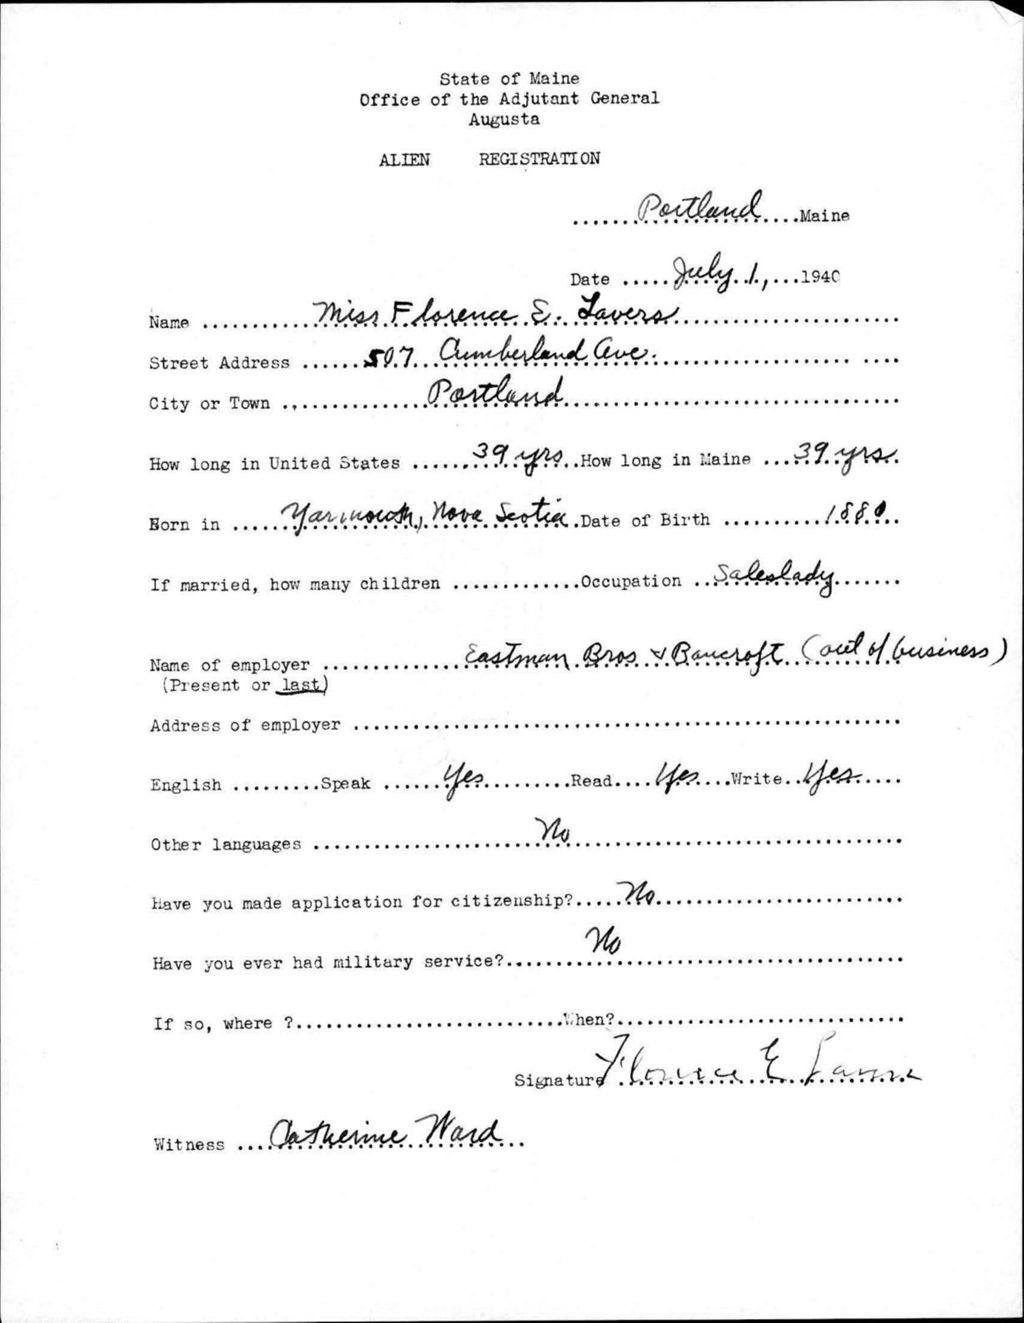 State of Maine
Office of the Adjutant General
Augusta
ALIEN REGISTRATION
.......Portland....Maine
Date .....July 1,...1940
Name ............Miss Florence E. Lavers..........................
Street Address ......507 Cumberland Ave............................
City or Town ................Portland.......................................
How long in United States ......39 yrs..How long in Maine ...39 yrs.
Born in .....Yarmouth, Nova Scotia.Date of Birth ..........1880..
If married, how many children .............Occupation ..Saleslady.......
Name of employer ................Eastman Bros & Bancroft (out of business)
(Present or last)
Address of employer ................................................................
English .........Speak ......Yes..........Read....Yes....Write..Yes.....
Other languages .........................No.......................................
Have you made application for citizenship?.....No.............................
Have you ever had military service?.........No.................................
If so, where ?..............................When?.................................
Signature Florence E Lavers
Witness ...Catherine Ward...